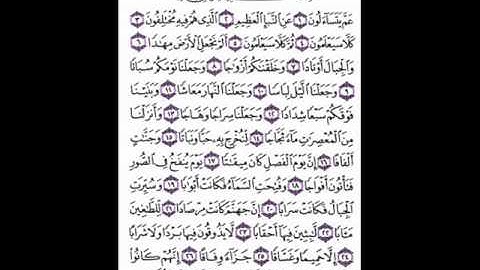 عَمَّ يَتَسَآءَلُونَ ١ عَنِ ٱلنَّبَإِ ٱلْعَظِيمِ ٢ ٱلَّذِى هُمْ فِيهِ مُخْتَلِفُونَ ٣
كَلَّا سَيَعْلَمُونَ ٤ ثُمَّ كَلَّا سَيَعْلَمُونَ ٥ أَلَمْ نَجْعَلِ ٱلْأَرْضَ مِهَٰدًا ٦
وَٱلْجِبَالَ أَوْتَادًا ٧ وَخَلَقْنَٰكُمْ أَزْوَٰجًا ٨ وَجَعَلْنَا نَوْمَكُمْ سُبَاتًا
٩ وَجَعَلْنَا ٱلَّيْلَ لِبَاسًا ١٠ وَجَعَلْنَا ٱلنَّهَارَ مَعَاشًا ١١ وَبَنَيْنَا
فَوْقَكُمْ سَبْعًا شِدَادًا ١٢ وَجَعَلْنَا سِرَاجًا وَهَّاجًا ١٣ وَأَنزَلْنَا
مِنَ ٱلْمُعْصِرَٰتِ مَآءً ثَجَّاجًا ١٤ لِّنُخْرِجَ بِهِۦ حَبًّا وَنَبَاتًا ١٥ وَجَنَّٰتٍ
أَلْفَافًا ١٦ إِنَّ يَوْمَ ٱلْفَصْلِ كَانَ مِيقَٰتًا ١٧ يَوْمَ يُنفَخُ فِى ٱلصُّورِ
فَتَأْتُونَ أَفْوَاجًا ١٨ وَفُتِحَتِ ٱلسَّمَآءُ فَكَانَتْ أَبْوَٰبًا ١٩ وَسُيِّرَتِ
ٱلْجِبَالُ فَكَانَتْ سَرَابًا ٢٠ إِنَّ جَهَنَّمَ كَانَتْ مِرْصَادًا ٢١ لِّلطَّٰغِينَ
مَـَٔابًا ٢٢ لَّٰبِثِينَ فِيهَآ أَحْقَابًا ٢٣ لَّا يَذُوقُونَ فِيهَا بَرْدًا وَلَا شَرَابًا
٢٤ إِلَّا حَمِيمًا وَغَسَّاقًا ٢٥ جَزَآءً وِفَاقًا ٢٦ إِنَّهُمْ كَانُوا۟